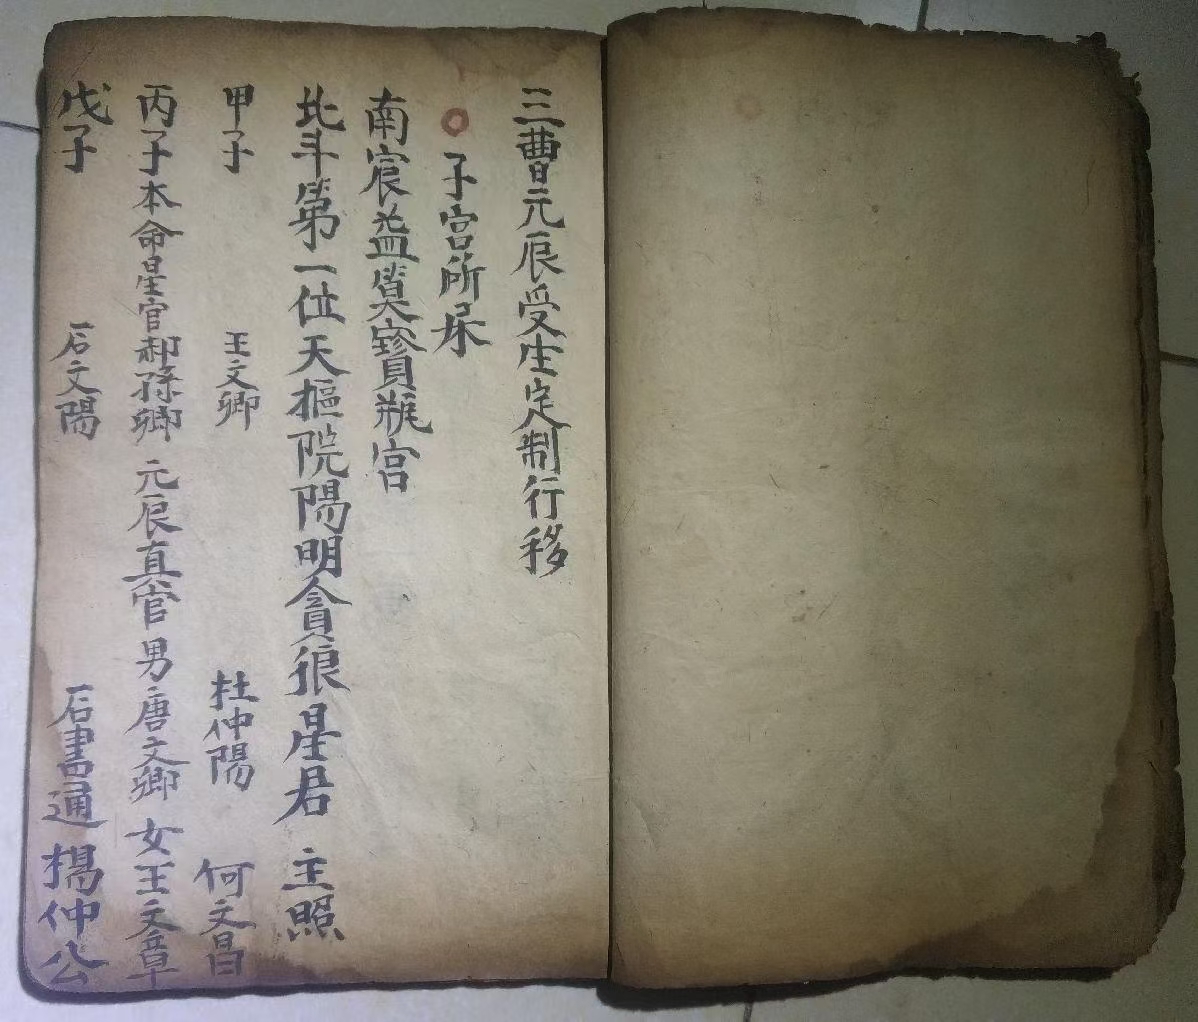 三曹元辰受生定制行移
○ 子宮所屎
南宸益算寶瓶宮
北斗第一位天樞院陽明貪狼星君 主照
甲子 王文卿 杜仲陽 何文昌
丙子本命星官郝孫卿 元辰真官 男唐文卿 女王文章
戊子 石文陽 石書通 楊仲公